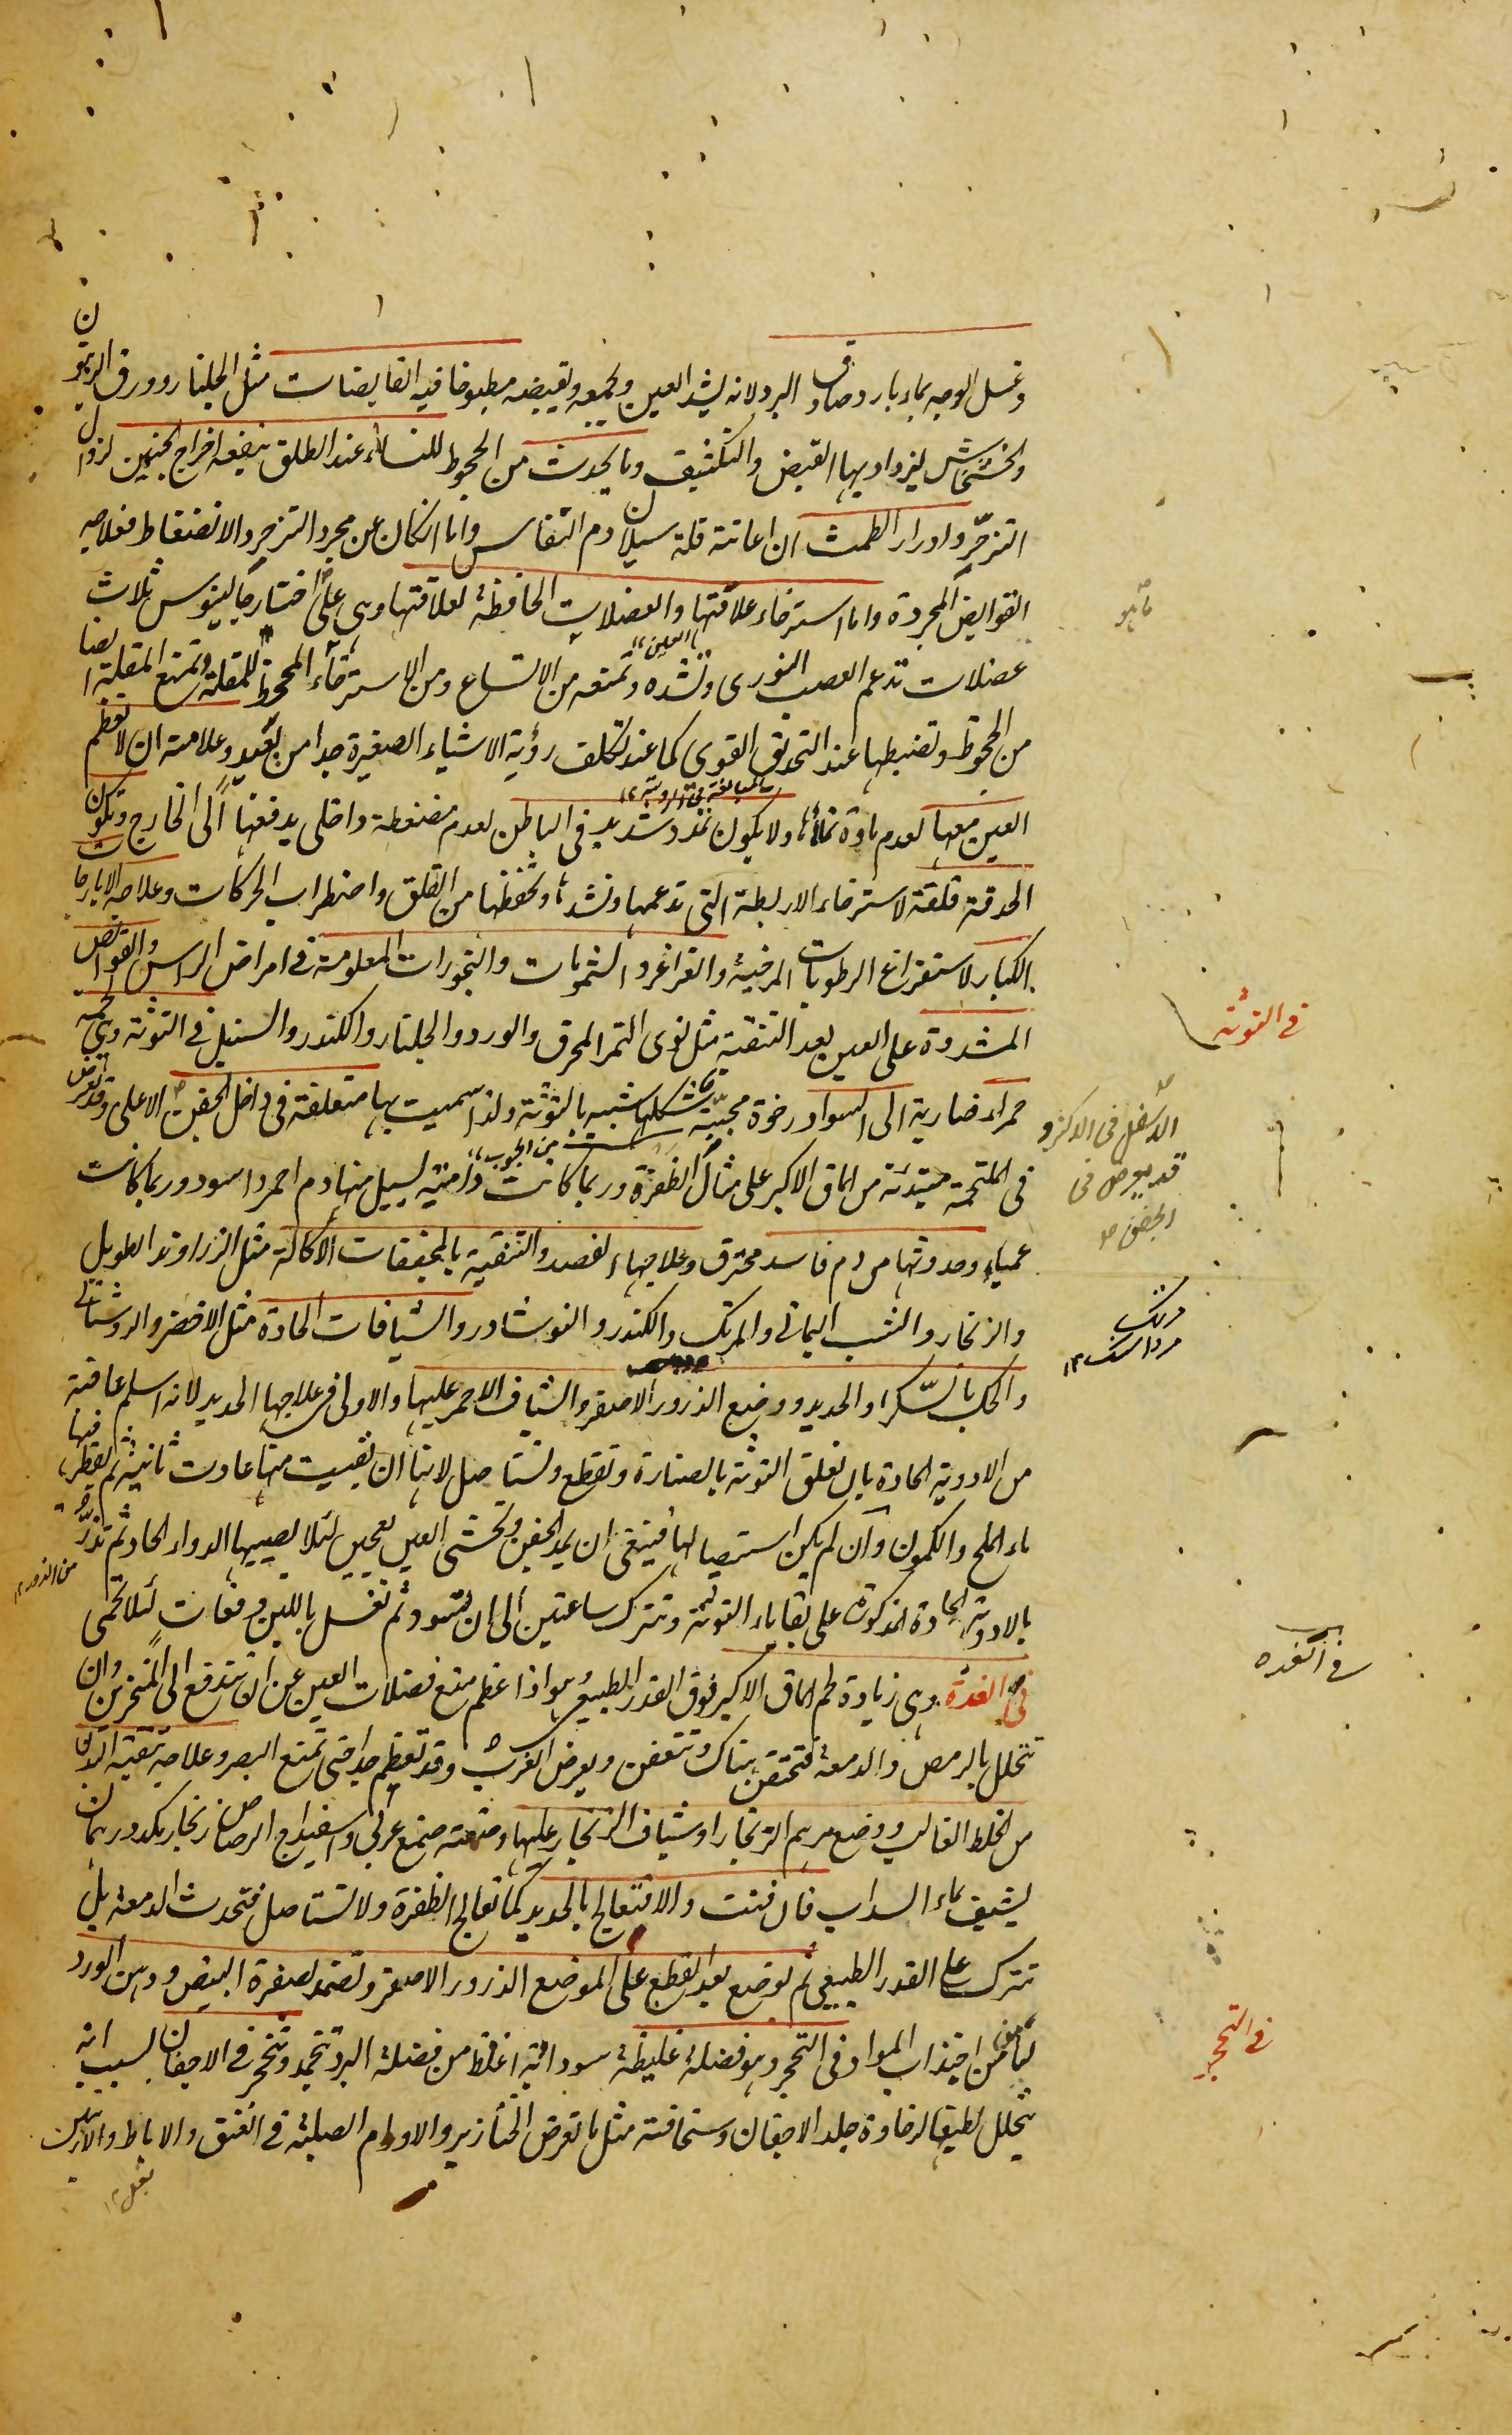 وغسل الوجه بماء بارد صادق البرد لانه يشد العين ويجمعه ويقبضه مطبوخا فيه القابضات مثل الجلنار وورق الزيتون
والخشخاش ليزداد بها القبض والتكثيف وما يحدث من الجحوظ للنساء عند الطلق ينفعه اخراج الجنين لزوال
التزحر وادرار الطمث ان اعانته قلة سيلان دم النفاس واما ان كان عن مجرد التزحر والانضغاط فعلاجه
القوابض المجردة واما استرخاء علاقتها والعضلات الحافظة لعلاقتها وهى على اختيار جالينوس ثلاث
عضلات تدعم العصب النورى وتشده وتمنعه من الاتساع ومن الاسترخاء المجحوظ للمقلة وتمنع المقلة ايضا
من الجحوظ وتضبطها عند التحديق القوى كما عند تكلف رؤية الاشياء الصغيرة جدا من بعيد وعلامته ان لا تعظم
العين معها لعدم مادة تملأها ولا يكون تمدد شديد فى الباطن لعدم ضغطة داخلى يدفعها الى الخارج وتكون
الحدقة قلقة لاسترخاء الاربطة التى تدعمها وتشدها وتحفظها من القلق واضطراب الحركات وعلاجه الايارجات
الكبار لاستفراغ الرطوبات المرخية والغراغر والشمومات والبخورات المعلومة فى امراض الراس والقوابض
المشددة على العين بعد التنقية مثل نوى التمر المحرق والورد والجلنار والكندر والسنبل فى التوثة وهى لحمة
حمراء ضاربة الى السواد رخوة محببة شكلها شبيه بالتوثة ولذا سميت بها متعلقة فى داخل الجفن الاعلى وقد تعرض
فى الملتحمة مبتدئة من الماق الاكبر على مثال الظفرة وربما كانت دامية يسيل منها دم احمر واسود وربما كانت
عمياء وحدوثها من دم فاسد محترق وعلاجها الفصد والتنقية بالمجففات الاكالة مثل الزراوند الطويل
والزنجار والشب اليمانى والمرتك والكندر والنوشادر والشيافات الحادة مثل الاخضر والروشنائى
والحك بالسكر او الحديد ووضع الذرور الاصفر والشياف الاحمر عليها والاولى فى علاجها الحديد لانه اسلم عاقبة
من الادوية الحادة بان تعلق التوثة بالصنارة وتقطع وتستاصل لانها ان بقيت منها عاودت ثانية ثم يقطر فيها
ماء الملح والكمون وان لم يكن استيصالها فينبغى ان يمد الجفن وتحشى العين بعجين لئلا يصيبها الدواء الحاد ثم تذر
بالادوية الحادة المذكورة على بقايا التوثة وتترك ساعتين الى ان تسود ثم تغسل باللبن دفعات لئلا تحمى
فى الغدة وهى زيادة لحم الماق الاكبر فوق القدر الطبيعى هو اذا عظم منع فضلات العين عن ان تندفع الى المنخرين وان
تتحلل بالرمص والدمعة فتحتقن هناك وتتعفن ويعرض الغرب وقد تعظم جدا حتى تمنع البصر وعلاجه تنقية البدن
من الخلط الغالب ووضع مرهم الزنجار او شياف الزنجار عليها وصنعته صمغ عربى واسفيداج الرصاص زنجار
يشيف بماء السداب فان فنت والا فتعالج بالحديد كما تعالج الظفرة ولا تستاصل فتحدث الدمعة بل
تترك على القدر الطبيعى ثم يوضع بعد القطع على الموضع الذرور الاصفر وتضمد بصفرة البيض ودهن الورد
ليأمن من اجتذاب المواد فى التحجر وهو فضلة غليظة سوداوية اغلظ من فضلة البرد تجمد وتتحجر فى الاجفان بسبب انه
يتحلل لطيفها لرخاوة جلد الاجفان وسخافته مثل ما تعرض الخنازير والاورام الصلبة فى العنق والاباط والاربيتين
العين
بالمبالغة فى الرؤية
من الجرب
من الذرور
فى التوثة
الاسفل فى الاكثر و
قد يعرض فى
الجفن
مرتك
مرداسنگ
فى الغدة
فى التحجر